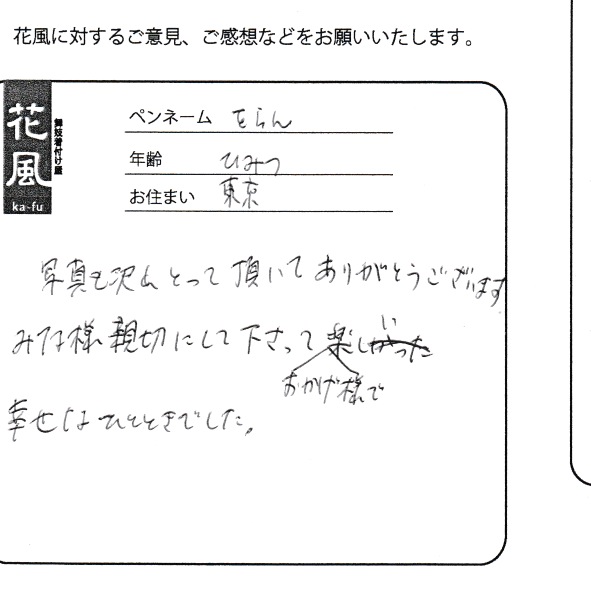 花風に対するご意見、ご感想などをお願いいたします。
花風
舞妓着付け屋
ka-fu
ペンネーム をらん
年齢 ひみつ
お住まい 東京
写真も沢山とって頂いてありがとうございます
みな様親切にして下さって楽しかった
い
おかげ様で
幸せなひとときでした。